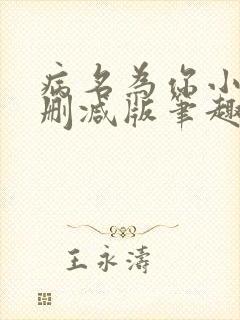 病名为你小
删减版笔趣
王永濤